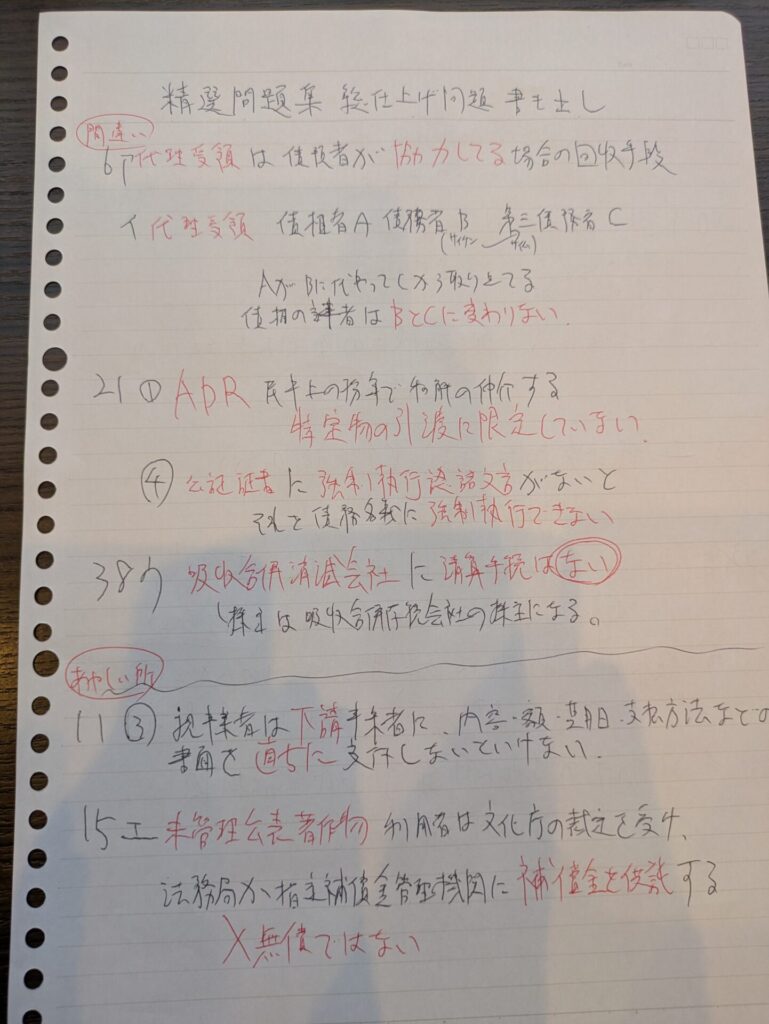 精選問題集 総仕上げ問題 書き出し
間違い
6ア 代理受領は 債務者が 協力してる 場合の回収手段
イ 代理受領 債権者A 債務者B 第三債務者C
(サイケン サイム)
AがBに代わってCから取り立てる
債権の 者は BとCに変わりない.
21 ① ADR 民事上の紛争で 和解の仲介する
特定物の引渡に限定していない.
④ 公正証書に 強制執行認諾文言がないと
それを債務名義に 強制執行できない
38ウ 吸収合併消滅会社に 清算手続はない
株主は 吸収合併存続会社の株主になる。
あやしい所
11 ③ 親事業者は下請事業者に、内容・額・期日・支払方法などの
書面を 直ちに 交付しないといけない.
15エ 未管理公表著作物 利用者は文化庁の裁定を受け、
法務局か指定補償金管理機関に 補償金を供託する
X無償ではない